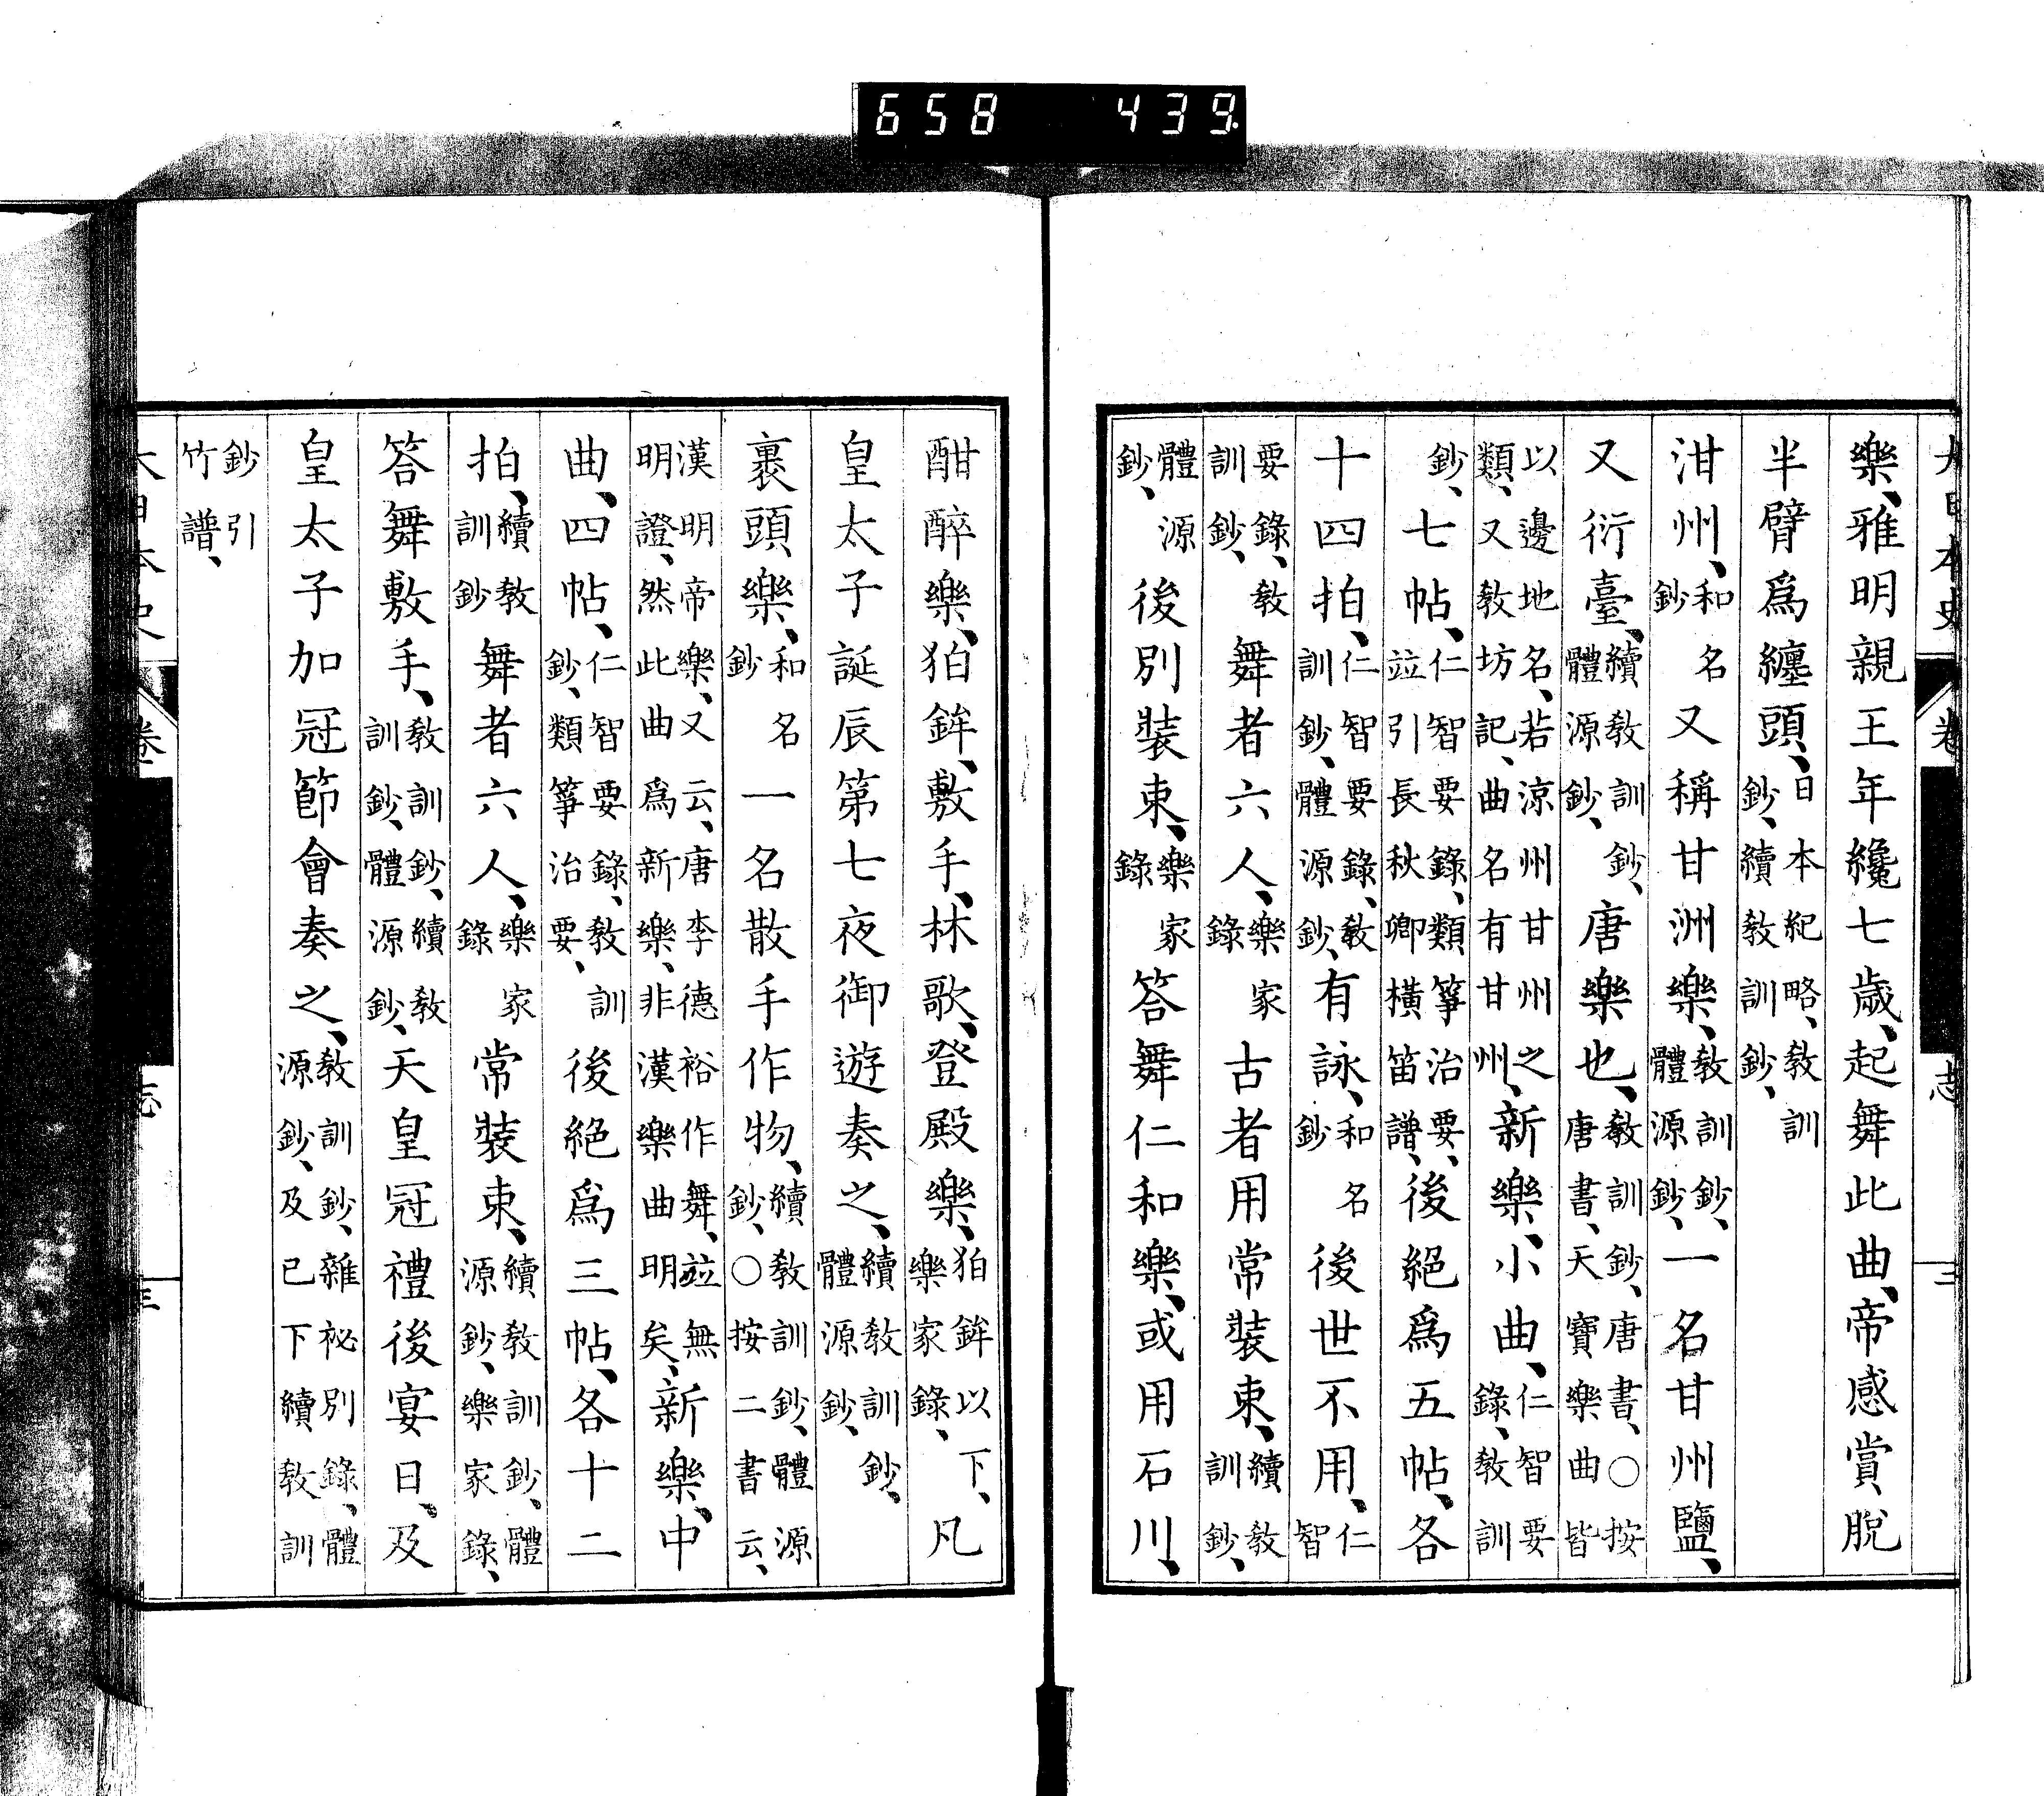 大日本史 卷 志
樂、雅明親王年纔七歲、起舞此曲、帝感賞、脫
半臂爲纏頭、日本紀略、敎訓鈔、續敎訓鈔、
泔州、和名鈔又稱甘洲樂、敎訓鈔、體源鈔、一名甘州鹽、
又衍臺、續敎訓鈔、體源鈔、唐樂也、敎訓鈔、唐書、○按唐書、天寶樂曲皆
以邊地名、若涼州甘州之類、又敎坊記、曲名有甘州、新樂、小曲、仁智要錄、敎訓
鈔、七帖、仁智要錄、類箏治要、竝引長秋卿橫笛譜、後絕爲五帖、各
十四拍、仁智要錄、敎訓鈔、體源鈔、有詠、和名鈔後世不用、仁智
要錄、敎訓鈔、舞者六人、樂家錄古者用常裝束、續敎訓鈔、
體源鈔、後別裝束、樂家錄答舞仁和樂、或用石川、
酣醉樂、狛鉾、敷手、林歌、登殿樂、狛鉾以下、樂家錄、凡
皇太子誕辰第七夜御遊奏之、續敎訓鈔、體源鈔、
裹頭樂、和名鈔一名散手作物、續敎訓鈔、體源鈔、○按二書云、
漢明帝樂、又云、唐李德裕作舞、竝無明證、然此曲爲新樂、非漢樂曲明矣、新樂、中
曲、四帖、仁智要錄、敎訓鈔、類箏治要、後絕爲三帖、各十二
拍、續敎訓鈔舞者六人、樂家錄常裝束、續敎訓鈔、體源鈔、樂家錄、
答舞敷手、敎訓鈔、續敎訓鈔、體源鈔、天皇冠禮後宴日、及
皇太子加冠節會奏之、敎訓鈔、雜祕別錄、體源鈔、及已下續敎訓
鈔引竹譜、
658 439